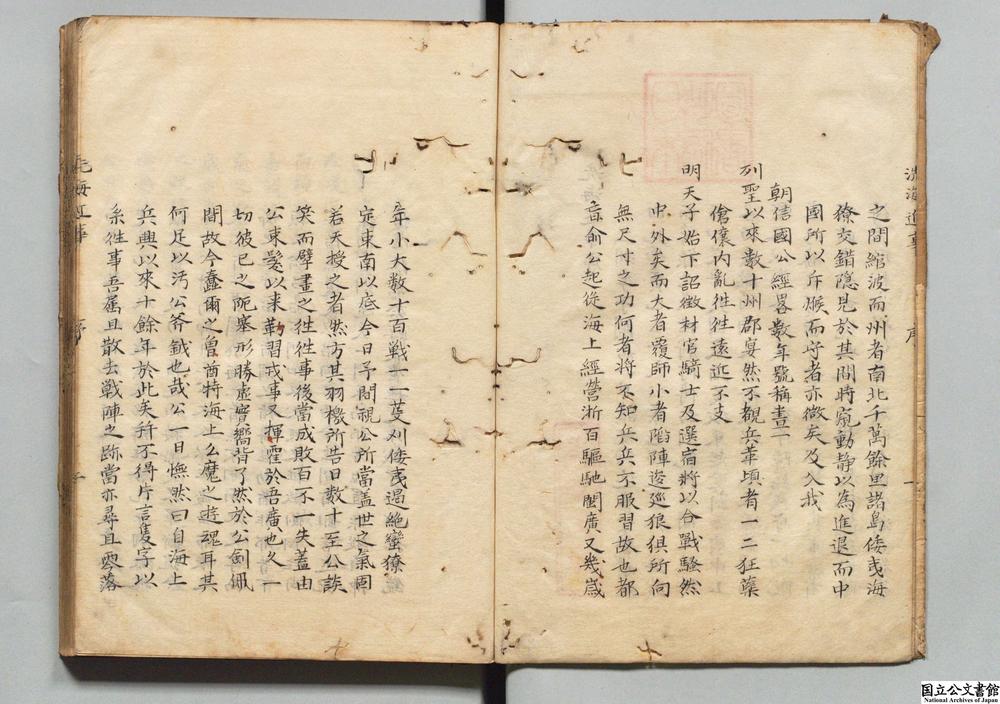 洗海近事 序 一
之間縮波而州者南北千萬餘里諸島倭夷海
獠交錯隠見於其間時窺動静以為進退而中
國所以斥堠而守者亦微矣及入我
朝信國公經畧数年號稱畫一
列聖以來数十州郡宴然不覩兵革頃者一二狂藥
傖儴内亂徃徃遠近不支
明天子始下詔徴材官騎士及選宿將以合戰騷然
中外矣而大者覆師小者陷陣逡廵狼俱所向
無尺寸之功何者將不知兵兵不服習故也都
督俞公起從海上經營浙百驅馳閩廣又幾歳
年小大数十百戦一一芟刈倭夷遏絶蠻獠
定東南以底今日予間視公所當盖世之氣固
若天授之者然方其羽檄所告日数十至公談
笑而擘畫之徃徃事後當成敗百不一失蓋由
公束髪以来勒習戎事又揮霍於吾廣也久一
切彼已之阨塞形勝虚實嚮背了然於公劍佩
間故今蠢爾之魯酋特海上么魔之遊魂耳其
何足以汚公斧鉞也哉公一日憮然曰自海上
兵興以來十餘年於此矣而不得片言隻字以
系徃事吾屬且散去戦陣之跡當亦尋且零落
洗海近事 序 一
国立公文書館
National Archives of Japan